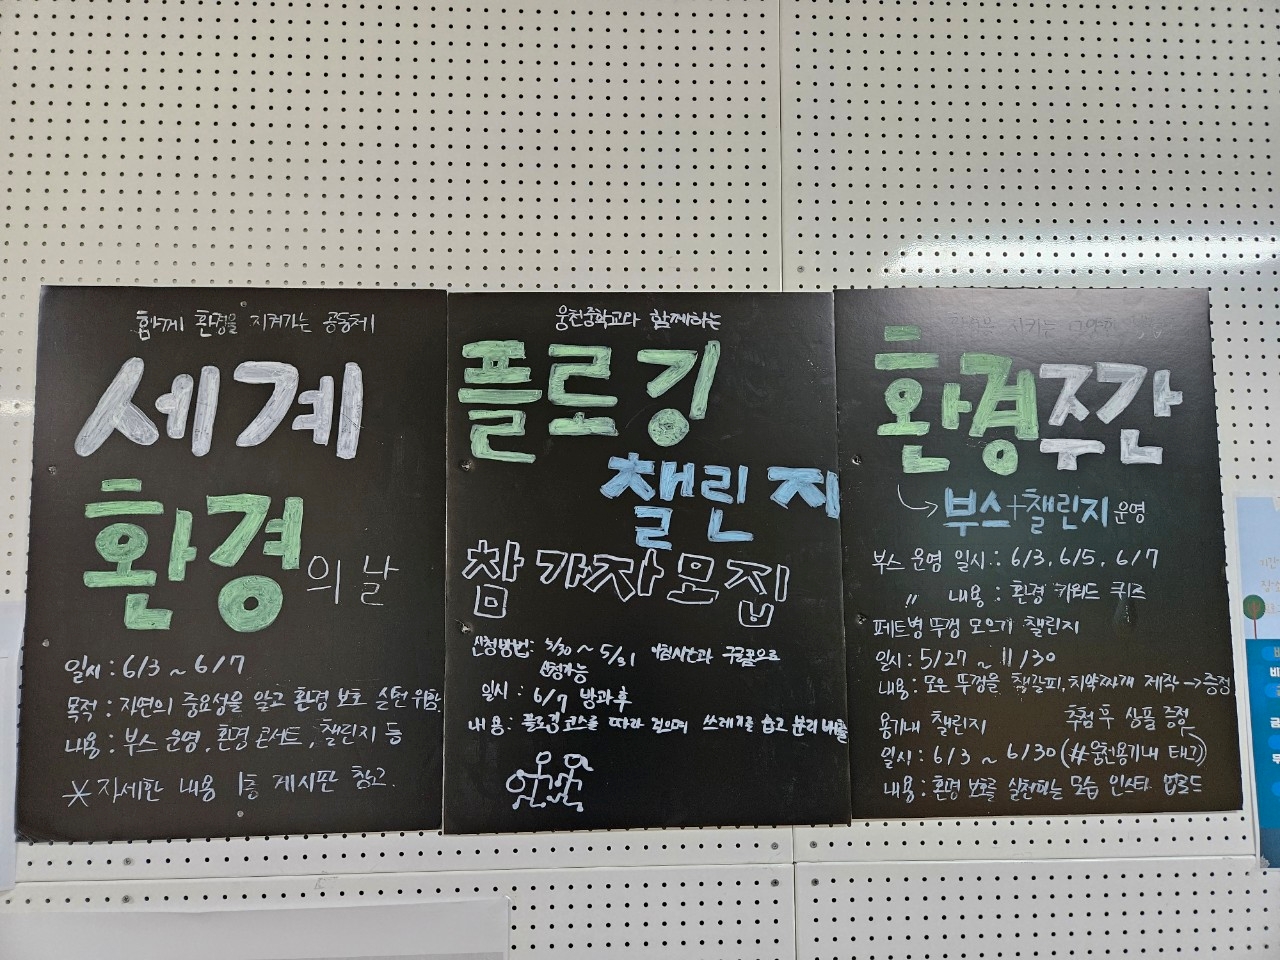 함께 환경을 지켜가는 공동체
세계
환경의 날
일시 : 6/3 ~ 6/7
목적 : 자연의 중요성을 알고 환경 보호 실천 위함
내용 : 부스 운영, 환경 콘서트, 챌린지 등
* 자세한 내용 1층 게시판 참고
웅천중학교와 함께하는
플로깅
챌린지
참가자모집
신청방법 : 5/30 ~ 5/31 아침시간과 구글폼으로
신청가능
일시 : 6/7 방과후
내용 : 플로깅코스를 따라 걸으며 쓰레기를 줍고 분리배출
지키는
환경주간
부스+챌린지 운영
부스 운영 일시 : 6/3, 6/5, 6/7
〃 내용 : 환경 키워드 퀴즈
페트병 뚜껑 모으기 챌린지
일시 : 5/27 ~ 11/30
내용 : 모은 뚜껑을 열갈피, 치약짜개 제작 → 증정
용기내 챌린지 추첨 후 상품 증정
일시 : 6/3 ~ 6/30 (#웅천용기내 태그)
내용 : 환경 보호를 실천하는 모습 인스타 업로드